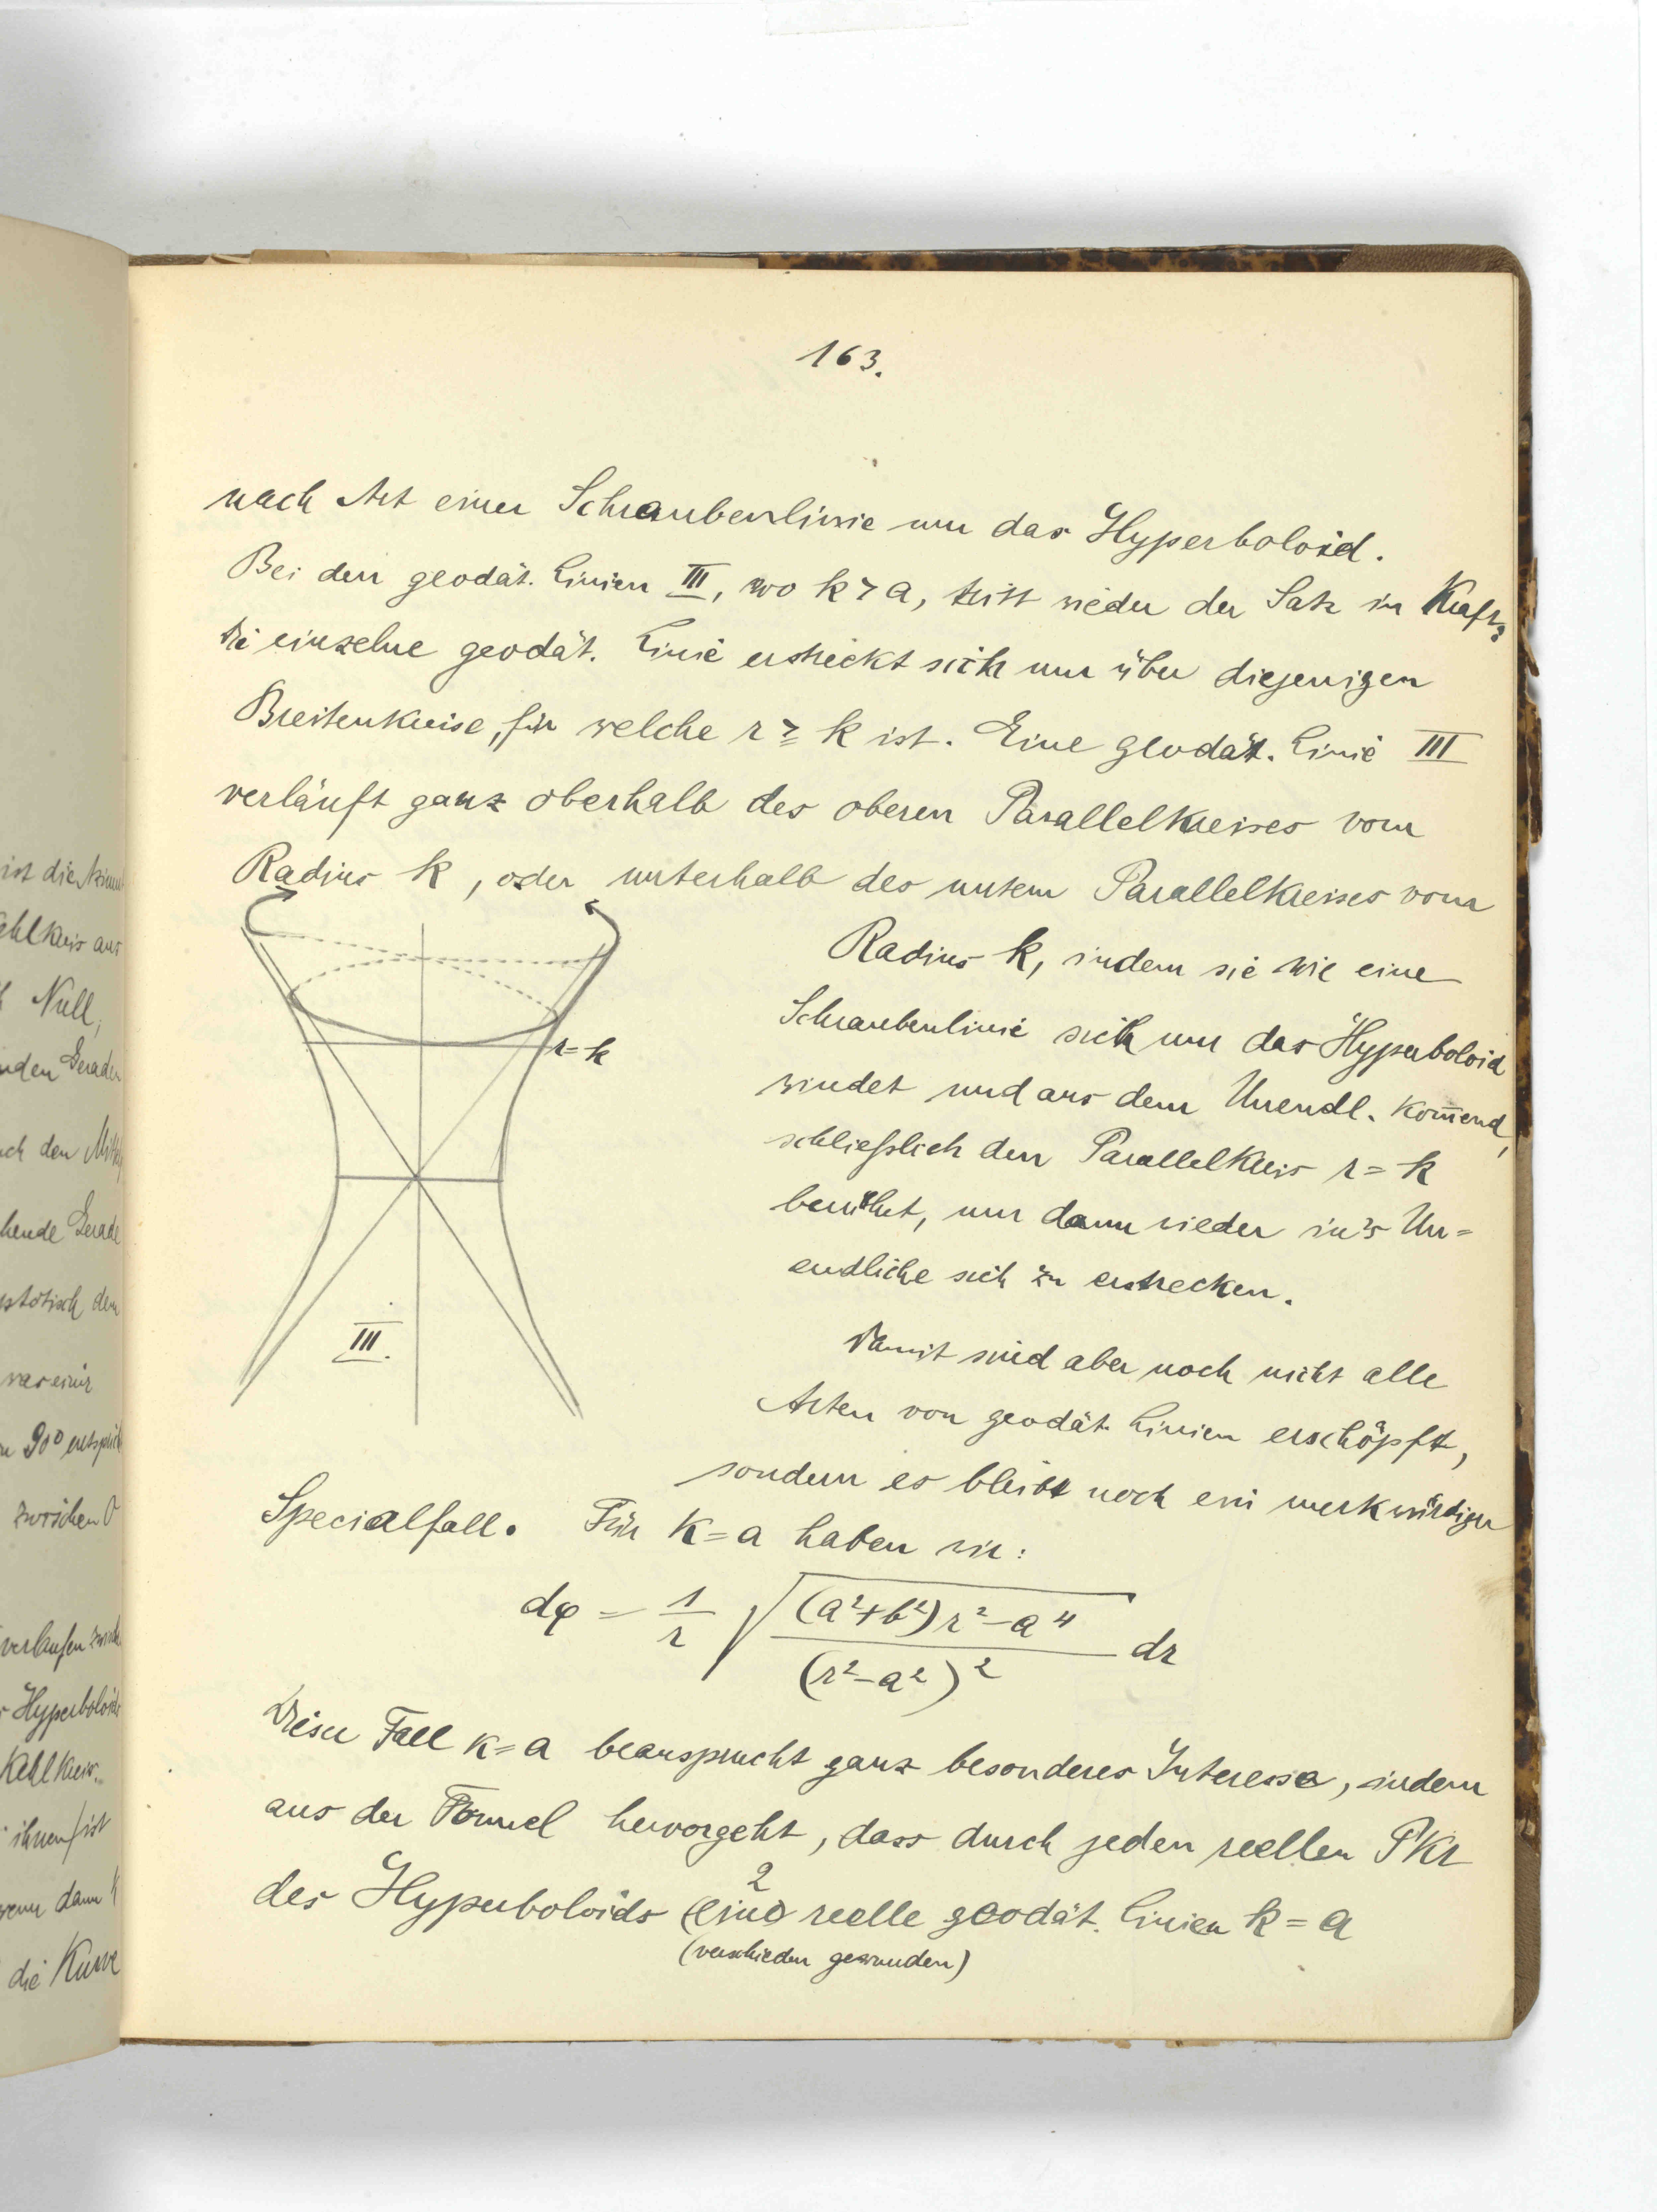 163.
nach Art einer Schraubenlinie um das Hyperboloid.
Bei den geodät. Linien III, wo k > a, tritt wieder der Satz in Kraft,
die einzelne geodät. Linie erstreckt sich nur über diejenigen
Breitenkreise, für welche r ≧ k ist. Eine geodät. Linie III
verläuft ganz oberhalb des oberen Parallelkreises vom
Radius k, oder unterhalb des untern Parallelkreises vom
Radius k, indem sie wie eine
Schraubenlinie sich um das Hyperboloid
windet und aus dem Unendl. kom̄end,
schließlich den Parallelkreis r = k
berührt, um dann wieder in's Un=
endliche sich zu erstrecken.
r = k
III.
Damit sind aber noch nicht alle
Arten von geodät. Linien erschöpft,
sondern es bleibt noch ein merkwürdiger
Specialfall. Für k = a haben wir:
dφ = 1/r √((a²+b²)r² – a⁴ / (r² – a²)²) dr
Dieser Fall k = a beansprucht ganz besonderes Interesse, indem
aus der Formel hervorgeht, dass durch jeden reellen PKr
des Hyperboloids (eine) 2 reelle geodät. Linien k = a
(verschieden gewunden)
ist die
Kehlkreis aus
Null,
den Gerade
ch den
hende Gerade
den
was einer
90°
zwischen 0
verlaufen
Hyperboloids
Kehlkreis.
ihnen ist
wenn dann k
die Kurve